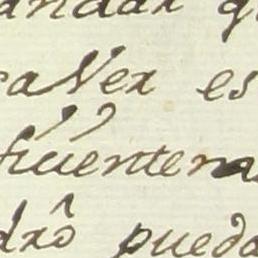 andar q
ca Vez es
ficientem
dr̃o pueda